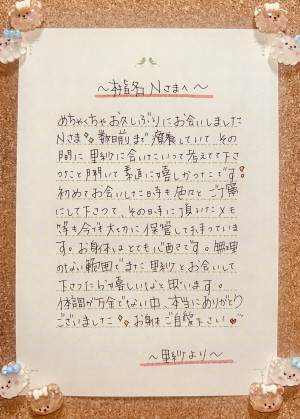 ～椎名Nさまへ～
めちゃくちゃお久しぶりにお会いしました
Nさま 数日前まで療養していて、その
間に里紗に会いたいって考えて下さ
ったと聞いて素直に嬉しかったです!
初めてお会いした日時も色々とご
にして下さって、その日時に頂いたメモ
今も大切に保管しております
す。お身体はとても心配です。無理
のない範囲でまた里紗とお会いして
下さったら嬉しいなと思います。
体調が万全でない中、本当にありがとう
ございました お身体ご自愛下さい
～里紗より～